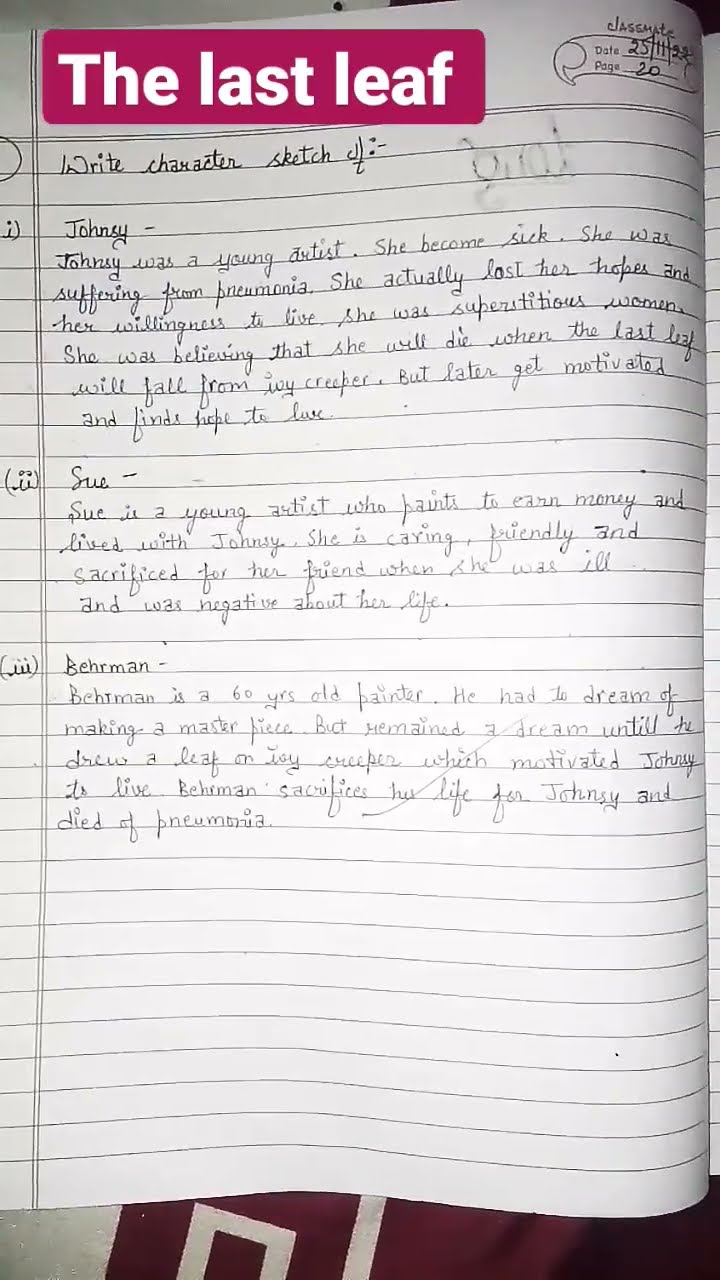 The last leaf
classmate
Date 25/11/22
Page 20
Write character sketch of:-
i) Johnsy -
Johnsy was a young artist. She become sick. She was
suffering from pneumonia. She actually lost her hopes and
her willingness to live. She was superstitious women.
She was believing that she will die when the last leaf
will fall from ivy creeper. But later get motivated
and finds hope to live.
(ii) Sue -
Sue is a young artist who paints to earn money and
lived with Johnsy. She is caring, friendly and
sacrificed for her friend when she was ill
and was negative about her life.
(iii) Behrman -
Behrman is a 60 yrs old painter. He had to dream of
making a master piece. But remained a dream untill he
drew a leaf on ivy creeper which motivated Johnsy
to live. Behrman sacrifices his life for Johnsy and
died of pneumonia.